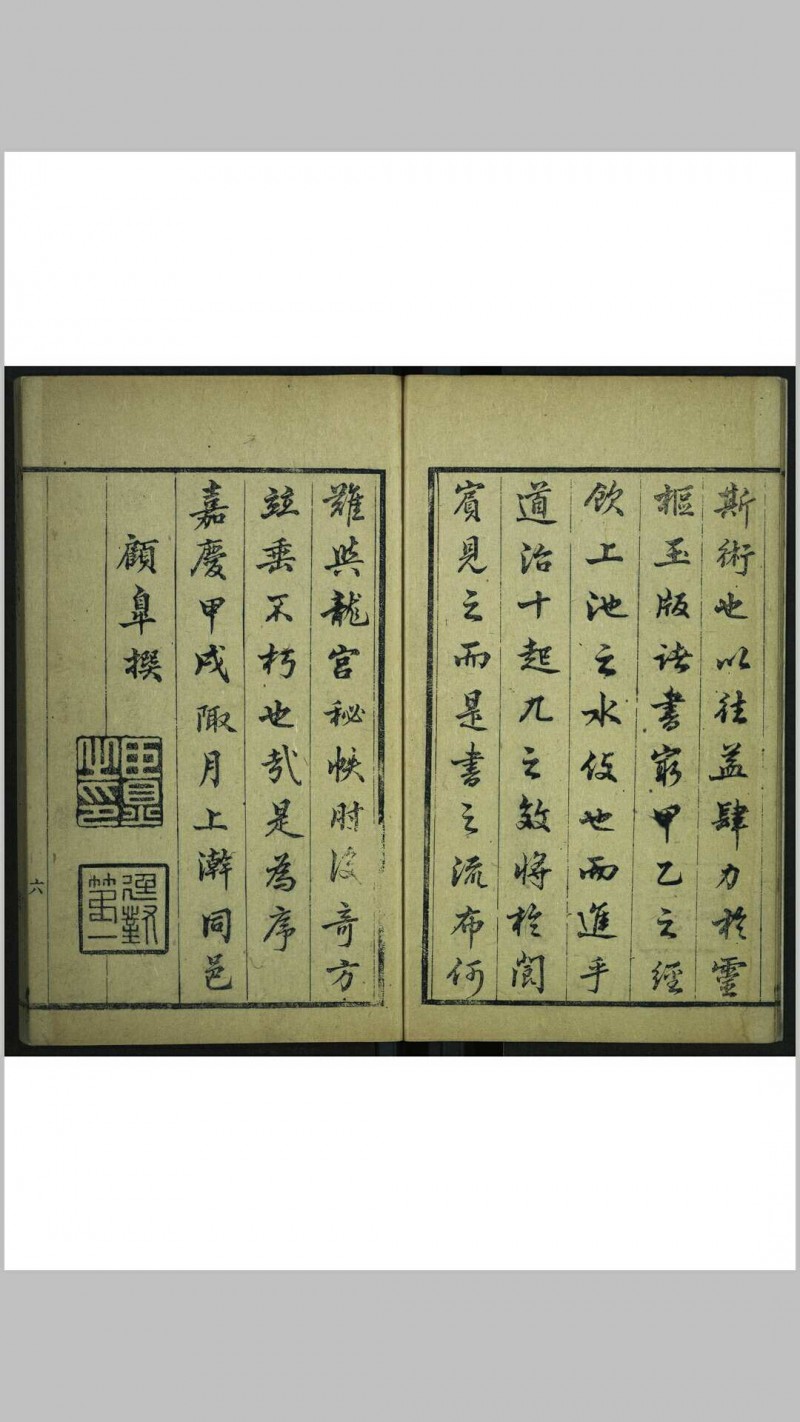 斯術也以往益肆力於靈
樞玉版諸書窮甲乙之經
飲上池之水伎也而進乎
道治十起九之效將於闤
賓見之而是書之流布何
難與龍宮秘帙肘後奇方
竝垂不朽也哉是為序
嘉慶甲戌陬月上澣同邑
顧皐撰
六